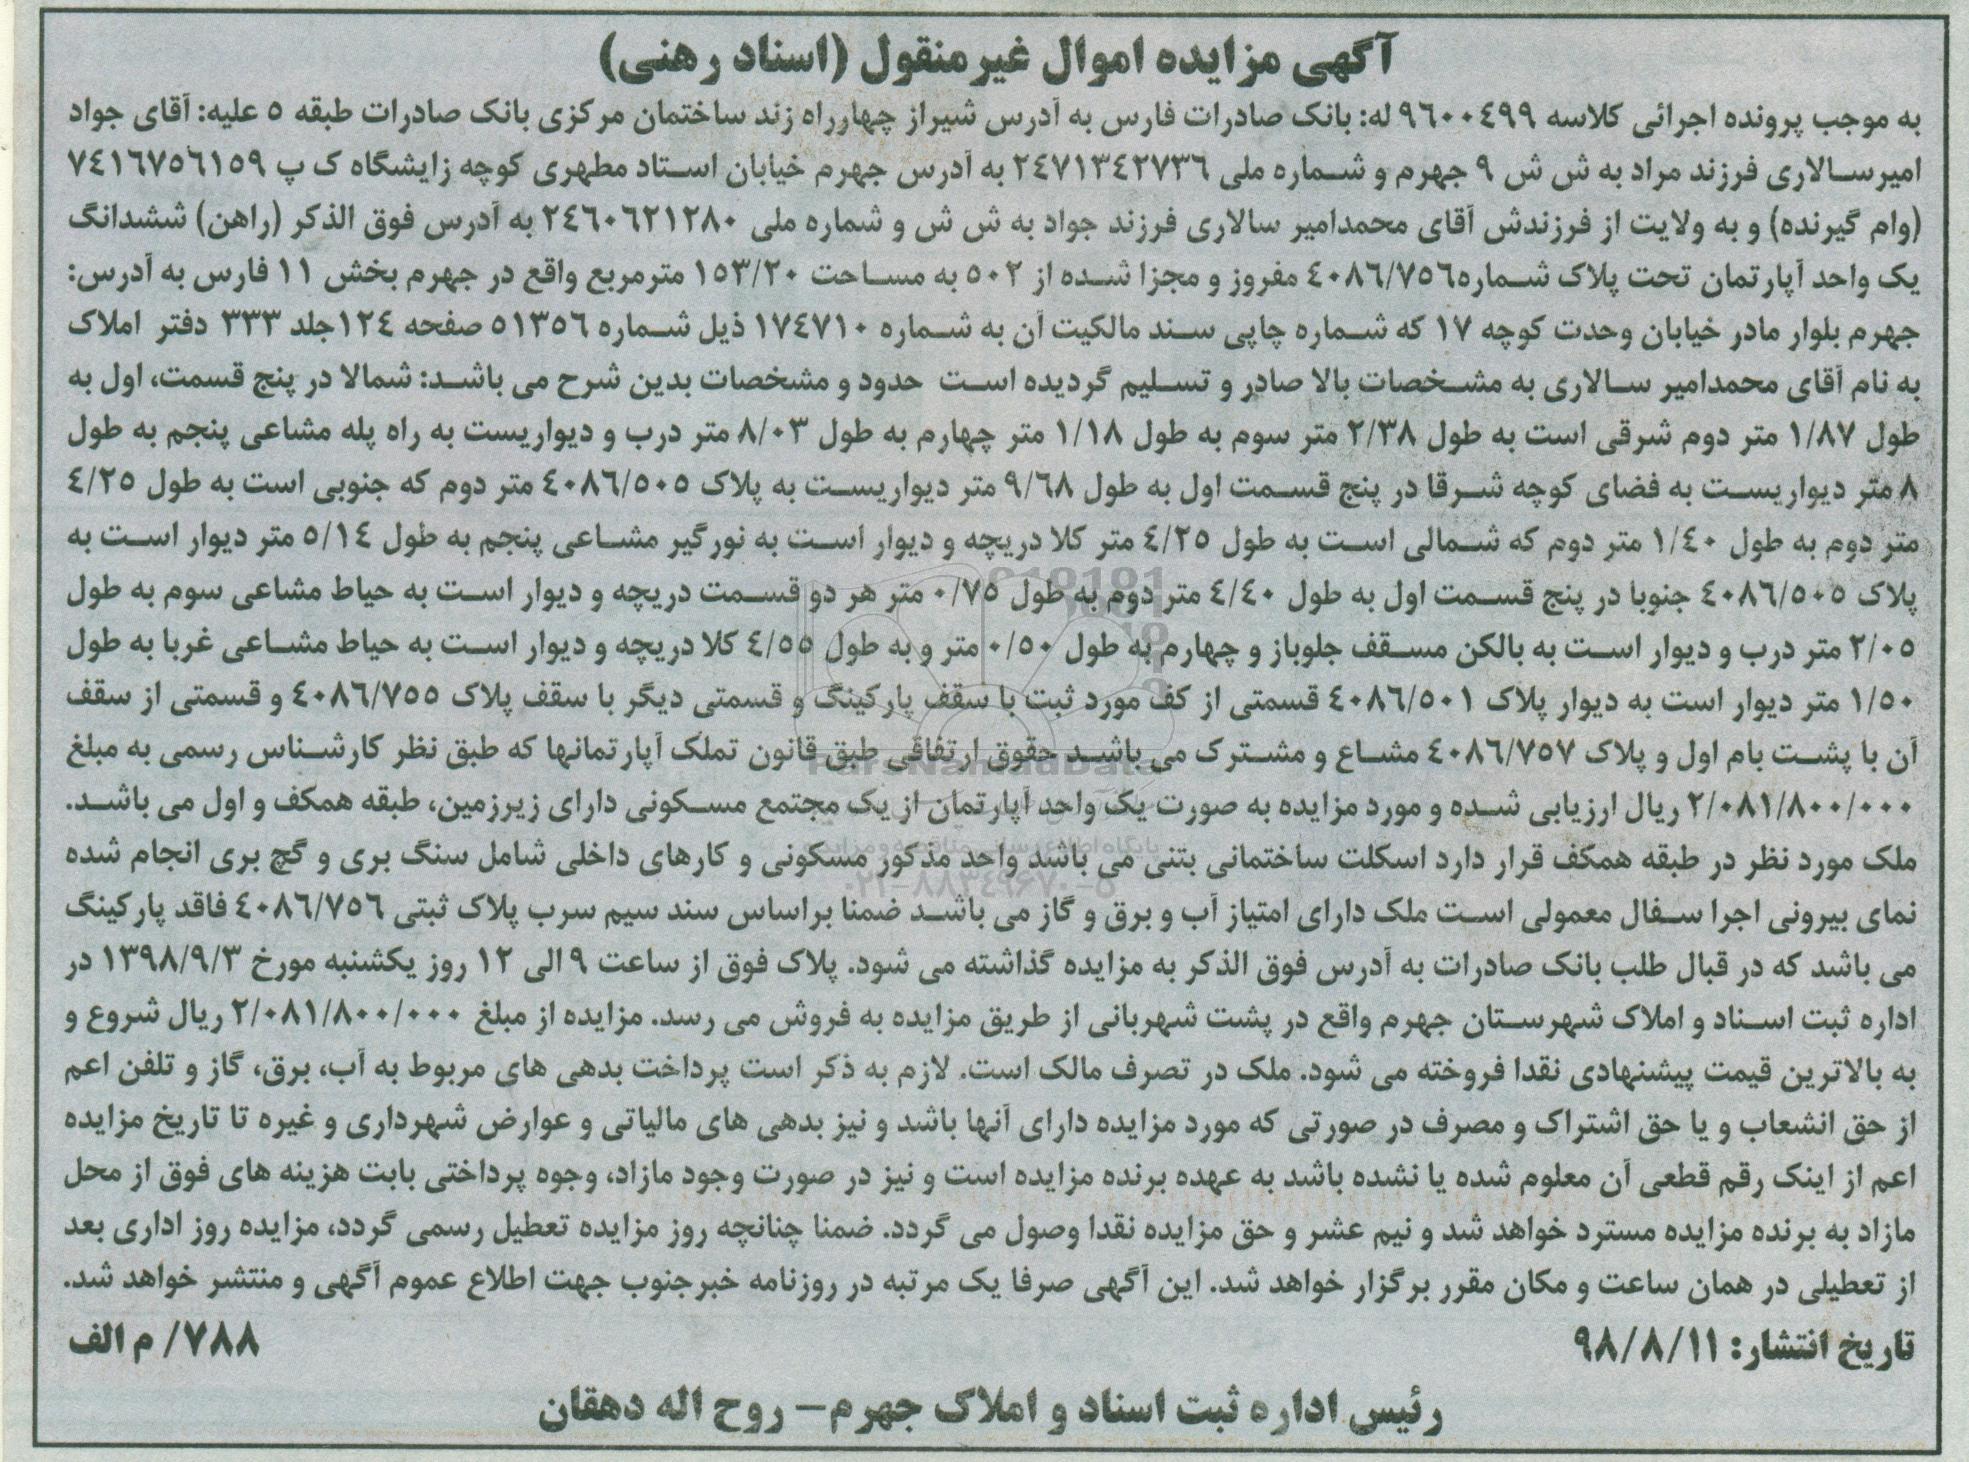 آگهی مزایده اموال غیرمنقول (اسناد رهنی)
به موجب پرونده اجرائی کلاسه ۹٦۰۰٤۹۹ له: بانک صادرات فارس به آدرس شیراز چهارراه زند ساختمان مرکزی بانک صادرات طبقه ٥ علیه: آقای جواد
امیرسالاری فرزند مراد به ش ش ۹ جهرم و شماره ملی ۲٤۷۱۳٤۲۷۳٦ به آدرس جهرم خیابان استاد مطهری کوچه زایشگاه ک پ ۷٤۱٦۷٥٦۱٥۹
(وام گیرنده) و به ولایت از فرزندش آقای محمدامیر سالاری فرزند جواد به ش ش و شماره ملی ۲٤٦۰٦۲۱۲۸۰ به آدرس فوق الذکر (راهن) ششدانگ
یک واحد آپارتمان تحت پلاک شماره٤۰۸٦/۷٥٦ مفروز و مجزا شده از ٥۰۲ به مساحت ۱٥۳/۲۰ مترمربع واقع در جهرم بخش ۱۱ فارس به آدرس:
جهرم بلوار مادر خیابان وحدت کوچه ۱۷ که شماره چاپی سند مالکیت آن به شماره ۱۷٤۷۱۰ ذیل شماره ٥۱۳٥٦ صفحه ۱۲٤جلد ۳۳۳ دفتر املاک
به نام آقای محمدامیر سالاری به مشخصات بالا صادر و تسلیم گردیده است حدود و مشخصات بدین شرح می باشد: شمالا در پنج قسمت، اول به
طول ۱/۸۷ متر دوم شرقی است به طول ۲/۳۸ متر سوم به طول ۱/۱۸ متر چهارم به طول ۸/۰۳ متر درب و دیواریست به راه پله مشاعی پنجم به طول
۸ متر دیواریست به فضای کوچه شرقا در پنج قسمت اول به طول ۹/٦۸ متر دیواریست به پلاک ٤۰۸٦/٥۰٥ متر دوم که جنوبی است به طول ٤/۲٥
متر دوم به طول ۱/٤۰ متر دوم که شمالی است به طول ٤/۲٥ متر کلا دریچه و دیوار است به نورگیر مشاعی پنجم به طول ٥/۱٤ متر دیوار است به
پلاک ٤۰۸٦/٥۰٥ جنوبا در پنج قسمت اول به طول ٤/٤۰ متر دوم به طول ۰/۷٥ متر هر دو قسمت دریچه و دیوار است به حیاط مشاعی سوم به طول
۲/۰٥ متر درب و دیوار است به بالکن مسقف جلوباز و چهارم به طول ۰/٥۰ متر و به طول ٤/٥٥ کلا دریچه و دیوار است به حیاط مشاعی غربا به طول
۱/٥۰ متر دیوار است به دیوار پلاک ٤۰۸٦/٥۰۱ قسمتی از کف مورد ثبت با سقف پارکینگ و قسمتی دیگر با سقف پلاک ٤۰۸٦/۷٥٥ و قسمتی از سقف
آن با پشت بام اول و پلاک ٤۰۸٦/۷٥۷ مشاع و مشترک می باشد حقوق ارتفاقی طبق قانون تملک آپارتمانها که طبق نظر کارشناس رسمی به مبلغ
۲/۰۸۱/۸۰۰/۰۰۰ ریال ارزیابی شده و مورد مزایده به صورت یک واحد آپارتمان از یک مجتمع مسکونی دارای زیرزمین، طبقه همکف و اول می باشد.
ملک مورد نظر در طبقه همکف قرار دارد اسکلت ساختمانی بتنی می باشد واحد مذکور مسکونی و کارهای داخلی شامل سنگ بری و گچ بری انجام شده
نمای بیرونی اجرا سفال معمولی است ملک دارای امتیاز آب و برق و گاز می باشد ضمنا براساس سند سیم سرب پلاک ثبتی ٤۰۸٦/۷٥٦ فاقد پارکینگ
می باشد که در قبال طلب بانک صادرات به آدرس فوق الذکر به مزایده گذاشته می شود. پلاک فوق از ساعت ۹ الی ۱۲ روز یکشنبه مورخ ۱۳۹۸/۹/۳ در
اداره ثبت اسناد و املاک شهرستان جهرم واقع در پشت شهربانی از طریق مزایده به فروش می رسد. مزایده از مبلغ ۲/۰۸۱/۸۰۰/۰۰۰ ریال شروع و
به بالاترین قیمت پیشنهادی نقدا فروخته می شود. ملک در تصرف مالک است. لازم به ذکر است پرداخت بدهی های مربوط به آب، برق، گاز و تلفن اعم
از حق انشعاب و یا حق اشتراک و مصرف در صورتی که مورد مزایده دارای آنها باشد و نیز بدهی های مالیاتی و عوارض شهرداری و غیره تا تاریخ مزایده
اعم از اینک رقم قطعی آن معلوم شده یا نشده باشد به عهده برنده مزایده است و نیز در صورت وجود مازاد، وجوه پرداختی بابت هزینه های فوق از محل
مازاد به برنده مزایده مسترد خواهد شد و نیم عشر و حق مزایده نقدا وصول می گردد. ضمنا چنانچه روز مزایده تعطیل رسمی گردد، مزایده روز اداری بعد
از تعطیلی در همان ساعت و مکان مقرر برگزار خواهد شد. این آگهی صرفا یک مرتبه در روزنامه خبرجنوب جهت اطلاع عموم آگهی و منتشر خواهد شد.
تاریخ انتشار: ۹۸/۸/۱۱ ۷۸۸/ م الف
رئیس اداره ثبت اسناد و املاک جهرم– روح اله دهقان
ParsNamadData
پایگاه اطلاع رسانی مناقصه و مزایده
۰۲۱-۸۸۳٤۹٦۷۰-٥